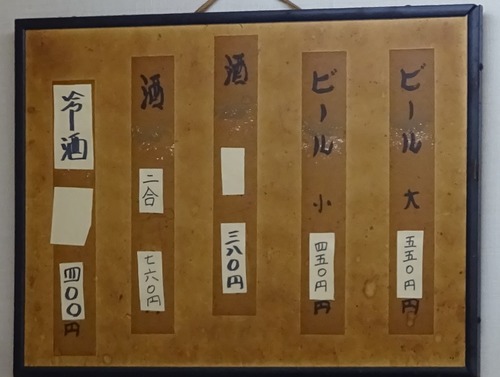 ビール 大 五五０円
ビール 小 四五０円
酒 三八０円
酒 二合 七六０円
冷酒 四００円